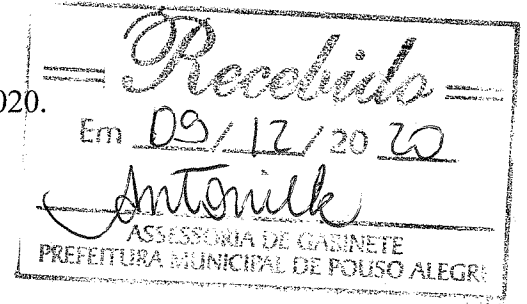 020.
Recebido
Em 09/12/20 20
ASSESSORIA DE GABINETE
PREFEITURA MUNICIPAL DE POUSO ALEGR